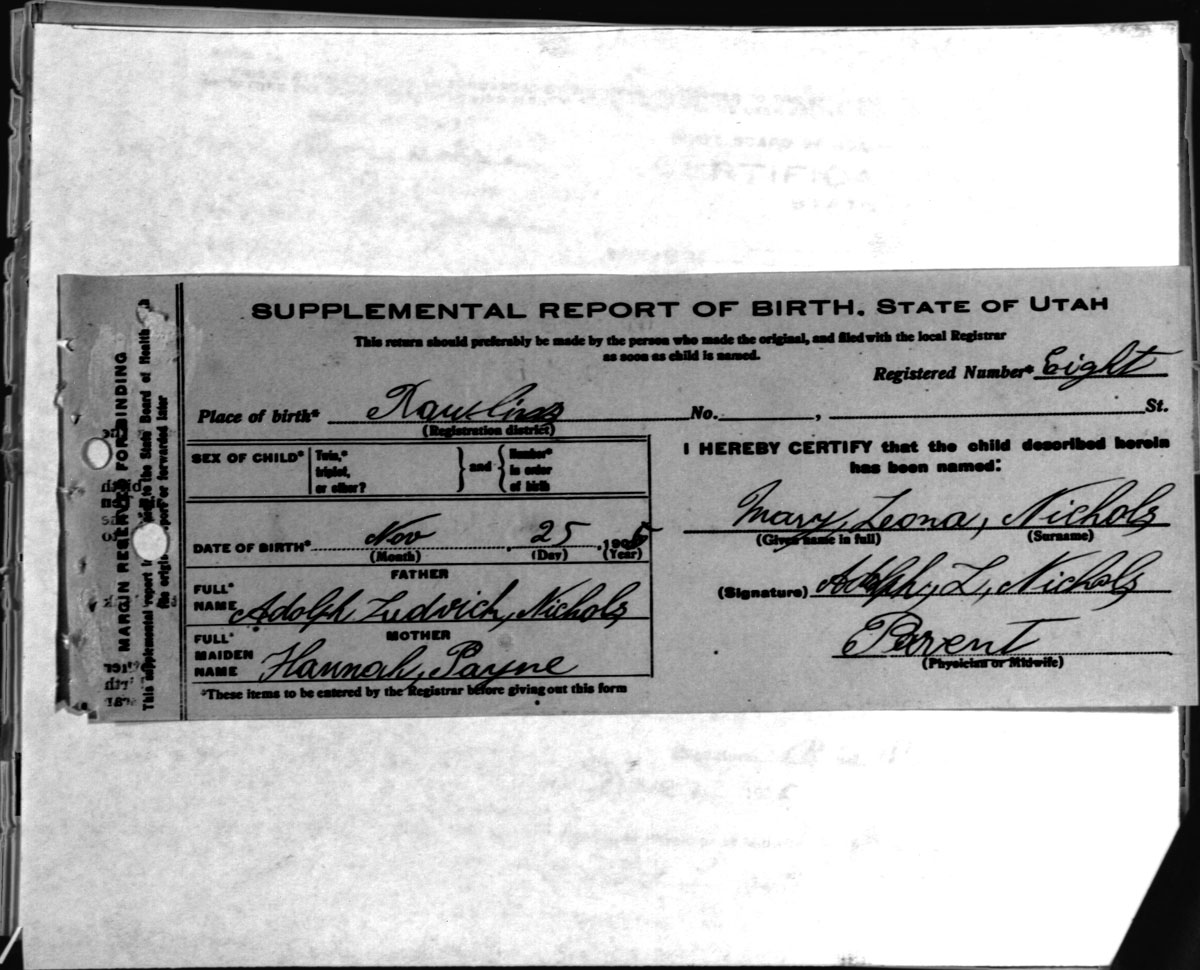 SUPPLEMENTAL REPORT OF BIRTH. STATE OF UTAH
This return should preferably be made by the person who made the original, and filed with the local Registrar
as soon as child is named.
Registered Number* Eight
Place of birth* Rawlins No. , St.
(Registration district)
SEX OF CHILD* Twin,* triplet, or other? } and { Number* in order of birth
DATE OF BIRTH* Nov 25, 190
(Month) (Day) (Year)
FATHER
FULL* NAME Adolph Ludvick, Nichols
MOTHER
FULL* MAIDEN NAME Hannah, Payne
*These items to be entered by the Registrar before giving out this form
I HEREBY CERTIFY that the child described herein
has been named:
Mary, Leona, Nichols
(Given name in full) (Surname)
(Signature) Adolph, L, Nichols
Parent
(Physician or Midwife)
MARGIN RESERVED FOR BINDING
This supplemental report to the State Board of Health
the original report or forwarded later